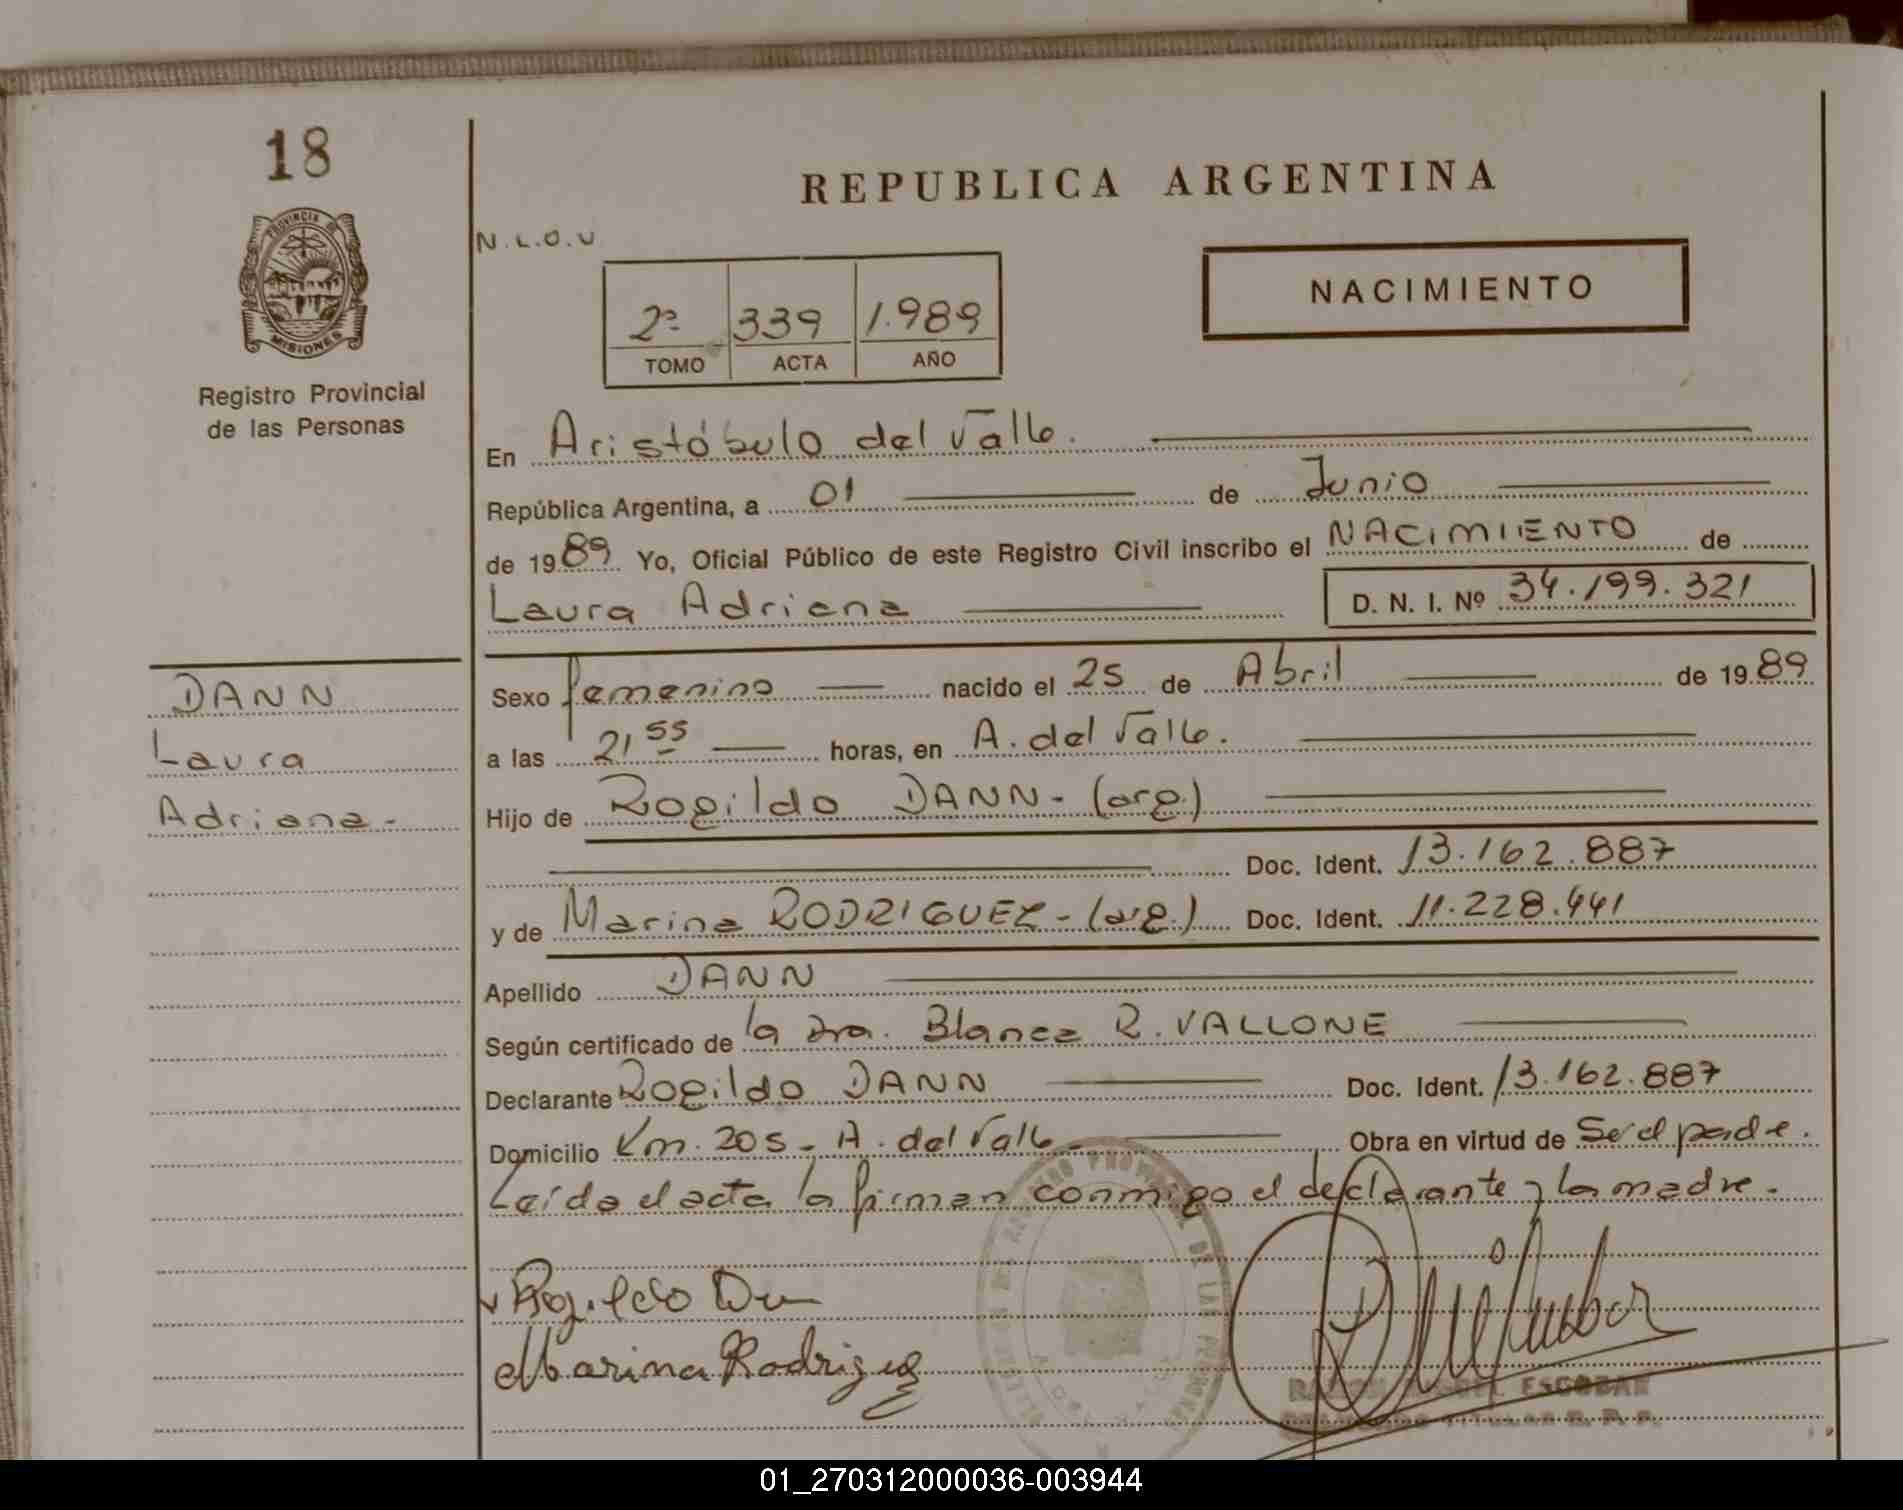 18
PROVINCIA DE
MISIONES
Registro Provincial
de las Personas
REPUBLICA ARGENTINA
N.L.O.U
NACIMIENTO
2ª 339 1.989
TOMO ACTA AÑO
En Aristóbulo del Valle.
República Argentina, a 01 de Junio
de 1989 Yo, Oficial Público de este Registro Civil inscribo el NACIMIENTO de
Laura Adriana D. N. I. Nº 34.199.321
DANN
Laura
Adriana.-
Sexo femenino nacido el 25 de Abril de 1989
a las 21 55 horas, en A. del Valle.
Hijo de Rogildo DANN- (arg.)
Doc. Ident. 13.162.887
y de Marina RODRIGUEZ - (arg.) Doc. Ident. 11.228.441
Apellido DANN
Según certificado de la Dra. Blanca R. VALLONE
Declarante Rogildo DANN Doc. Ident. 13.162.887
Domicilio Km. 205 - A. del Valle Obra en virtud de Ser el padre.
Leída el acta la firman conmigo el declarante y la madre.
Rogildo
Marina Rodriguez
ESCOBAR
TITULAR R. P. P.
01_270312000036-003944